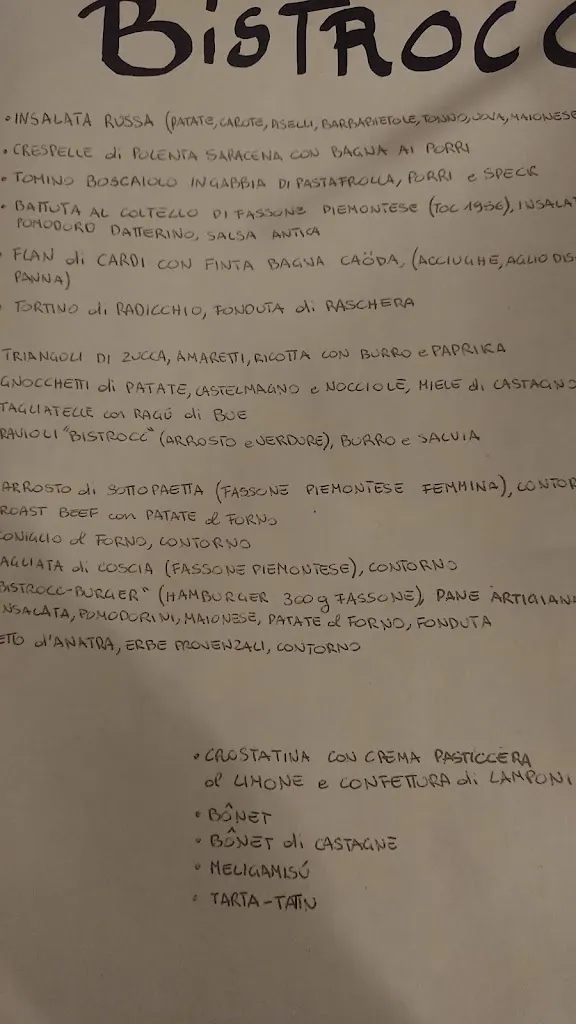 BISTROCC
• INSALATA RUSSA (PATATE, CAROTE, PISELLI, BARBABIETOLE, TONNO, UOVA, MAIONESE
• CRESPELLE di POLENTA SARACENA CON BAGNA AI PORRI
• TOMINO BOSCAIOLO IN GABBIA DI PASTAFROLLA, PORRI e SPECK
• BATTUTA AL COLTELLO DI FASSONE PIEMONTESE (TOC 1956), INSALAT
POMODORO DATTERINO, SALSA ANTICA
• FLAN di CARDI CON FINTA BAGNA CAÖDA, (ACCIUGHE, AGLIO DIS
PANNA)
• TORTINO di RADICCHIO, FONDUTA di RASCHERA
TRIANGOLI DI ZUCCA, AMARETTI, RICOTTA CON BURRO e PAPRIKA
GNOCCHETTI di PATATE, CASTELMAGNO e NOCCIOLE, MIELE di CASTAGNO
TAGLIATELLE con RAGÚ di BUE
RAVIOLI "BISTROCC" (ARROSTO e VERDURE), BURRO e SALVIA
ARROSTO di SOTTOPAETTA (FASSONE PIEMONTESE FEMMINA), CONTOR
ROAST BEEF con PATATE al FORNO
CONIGLIO al FORNO, CONTORNO
TAGLIATA di COSCIA (FASSONE PIEMONTESE), CONTORNO
BISTROCC-BURGER" (HAMBURGER 300g FASSONE), PANE ARTIGIANA
INSALATA, POMODORINI, MAIONESE, PATATE al FORNO, FONDUTA
ETTO d'ANATRA, ERBE PROVENZALI, CONTORNO
• CROSTATINA CON CREMA PASTICCERA
al LIMONE e CONFETTURA di LAMPONI
• BÔNET
• BÔNET di CASTAGNE
• MELIGAMISÚ
• TARTA-TATIN